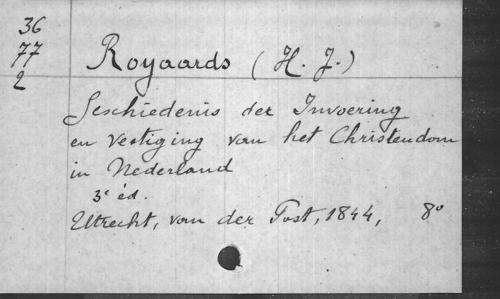 36
77
2
Royaards (H. J.)
Geschiedenis der Invoering
en Vestiging van het Christendom
in Nederland
3e éd.
Utrecht, van der Post, 1844, 8o